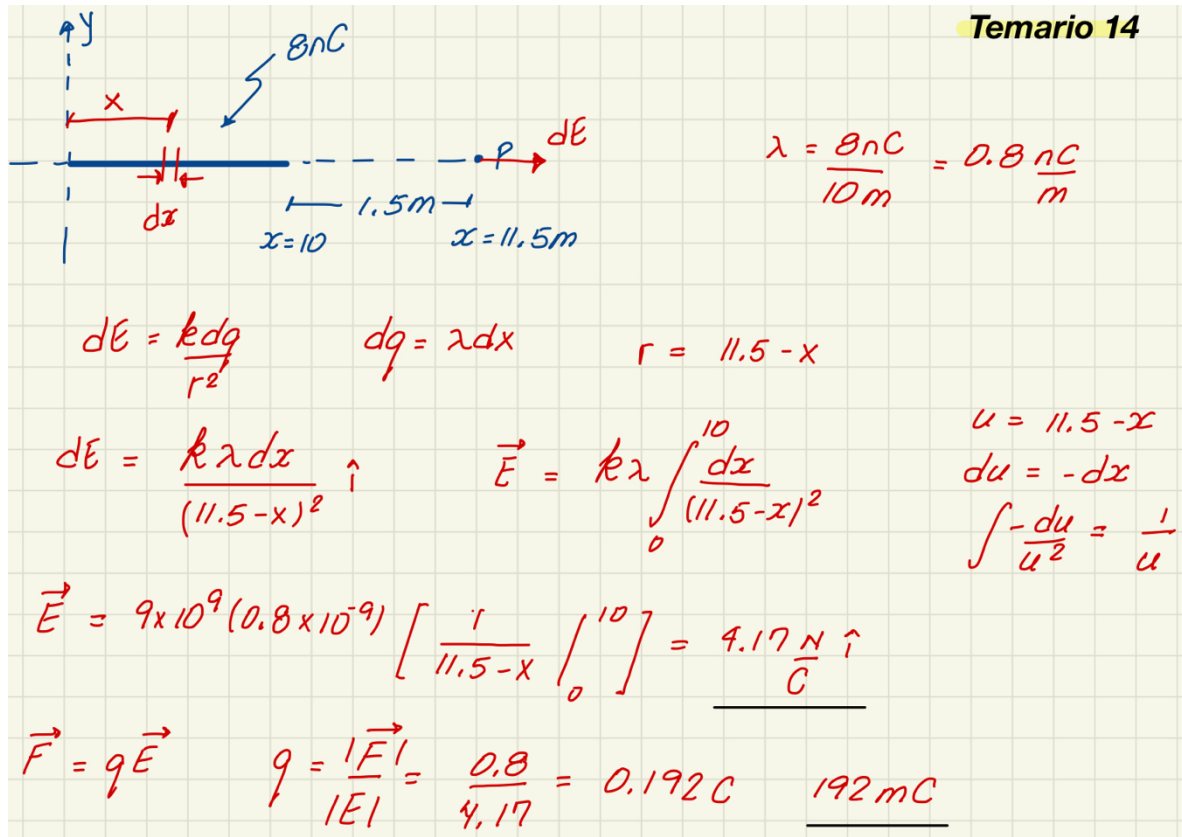 Temario 14
y
8nC
x
dx
P
dE
1.5m
x=10
x=11.5m
λ = 8nC/10m = 0.8 nC/m
dE = kdq/r²
dq = λdx
r = 11.5 - x
dE = kλdx/(11.5-x)² î
E⃗ = kλ ∫₀¹⁰ dx/(11.5-x)²
u = 11.5-x
du = -dx
∫ -du/u² = 1/u
E⃗ = 9x10⁹(0.8x10⁻⁹) [ 1/(11.5-x) |₀¹⁰ ] = 4.17 N/C î
F⃗ = qE⃗
q = |F⃗|/|E| = 0.8/4.17 = 0.192C
192mC